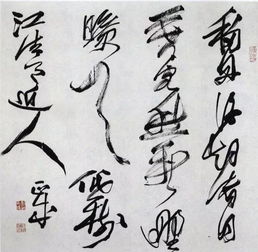 移舟泊烟渚日
暮客愁新野
曠天低樹
江清月近人